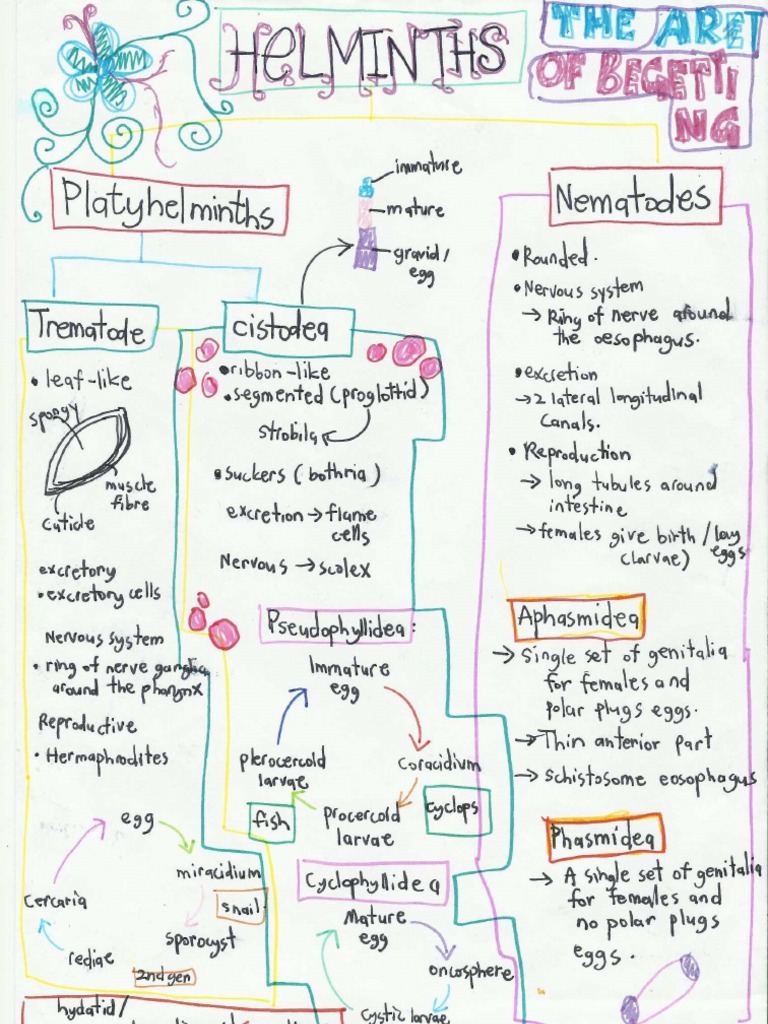 HELMINTHS
THE ART
OF BEGETTI
NG
Platyhelminths
immature
mature
gravid/
egg
Nematodes
Trematode
cistodea
• leaf-like
spongy
muscle
fibre
cuticle
excretory
• excretory cells
Nervous system
• ring of nerve ganglia
around the pharynx
Reproductive
• Hermaphrodites
egg
miracidium
snail
sporocyst
2nd gen
rediae
Cercaria
hydatid/
• ribbon-like
• segmented (proglottid)
strobila
• suckers (bothria)
excretion → flame
cells
Nervous → scolex
Pseudophyllidea:
Immature
egg
coracidium
cyclops
procercoid
larvae
fish
plerocercoid
larvae
Cyclophyllidea
Mature
egg
oncosphere
cystic larvae
• Rounded.
• Nervous system
→ Ring of nerve around
the oesophagus.
• excretion
→ 2 lateral longitudinal
canals.
• Reproduction
→ long tubules around
intestine
→ females give birth / lay
(larvae) eggs
Aphasmidea
→ Single set of genitalia
for females and
polar plugs eggs.
→ Thin anterior part
→ schistosome eosophagus
Phasmidea
→ A single set of genitalia
for females and
no polar plugs
eggs.